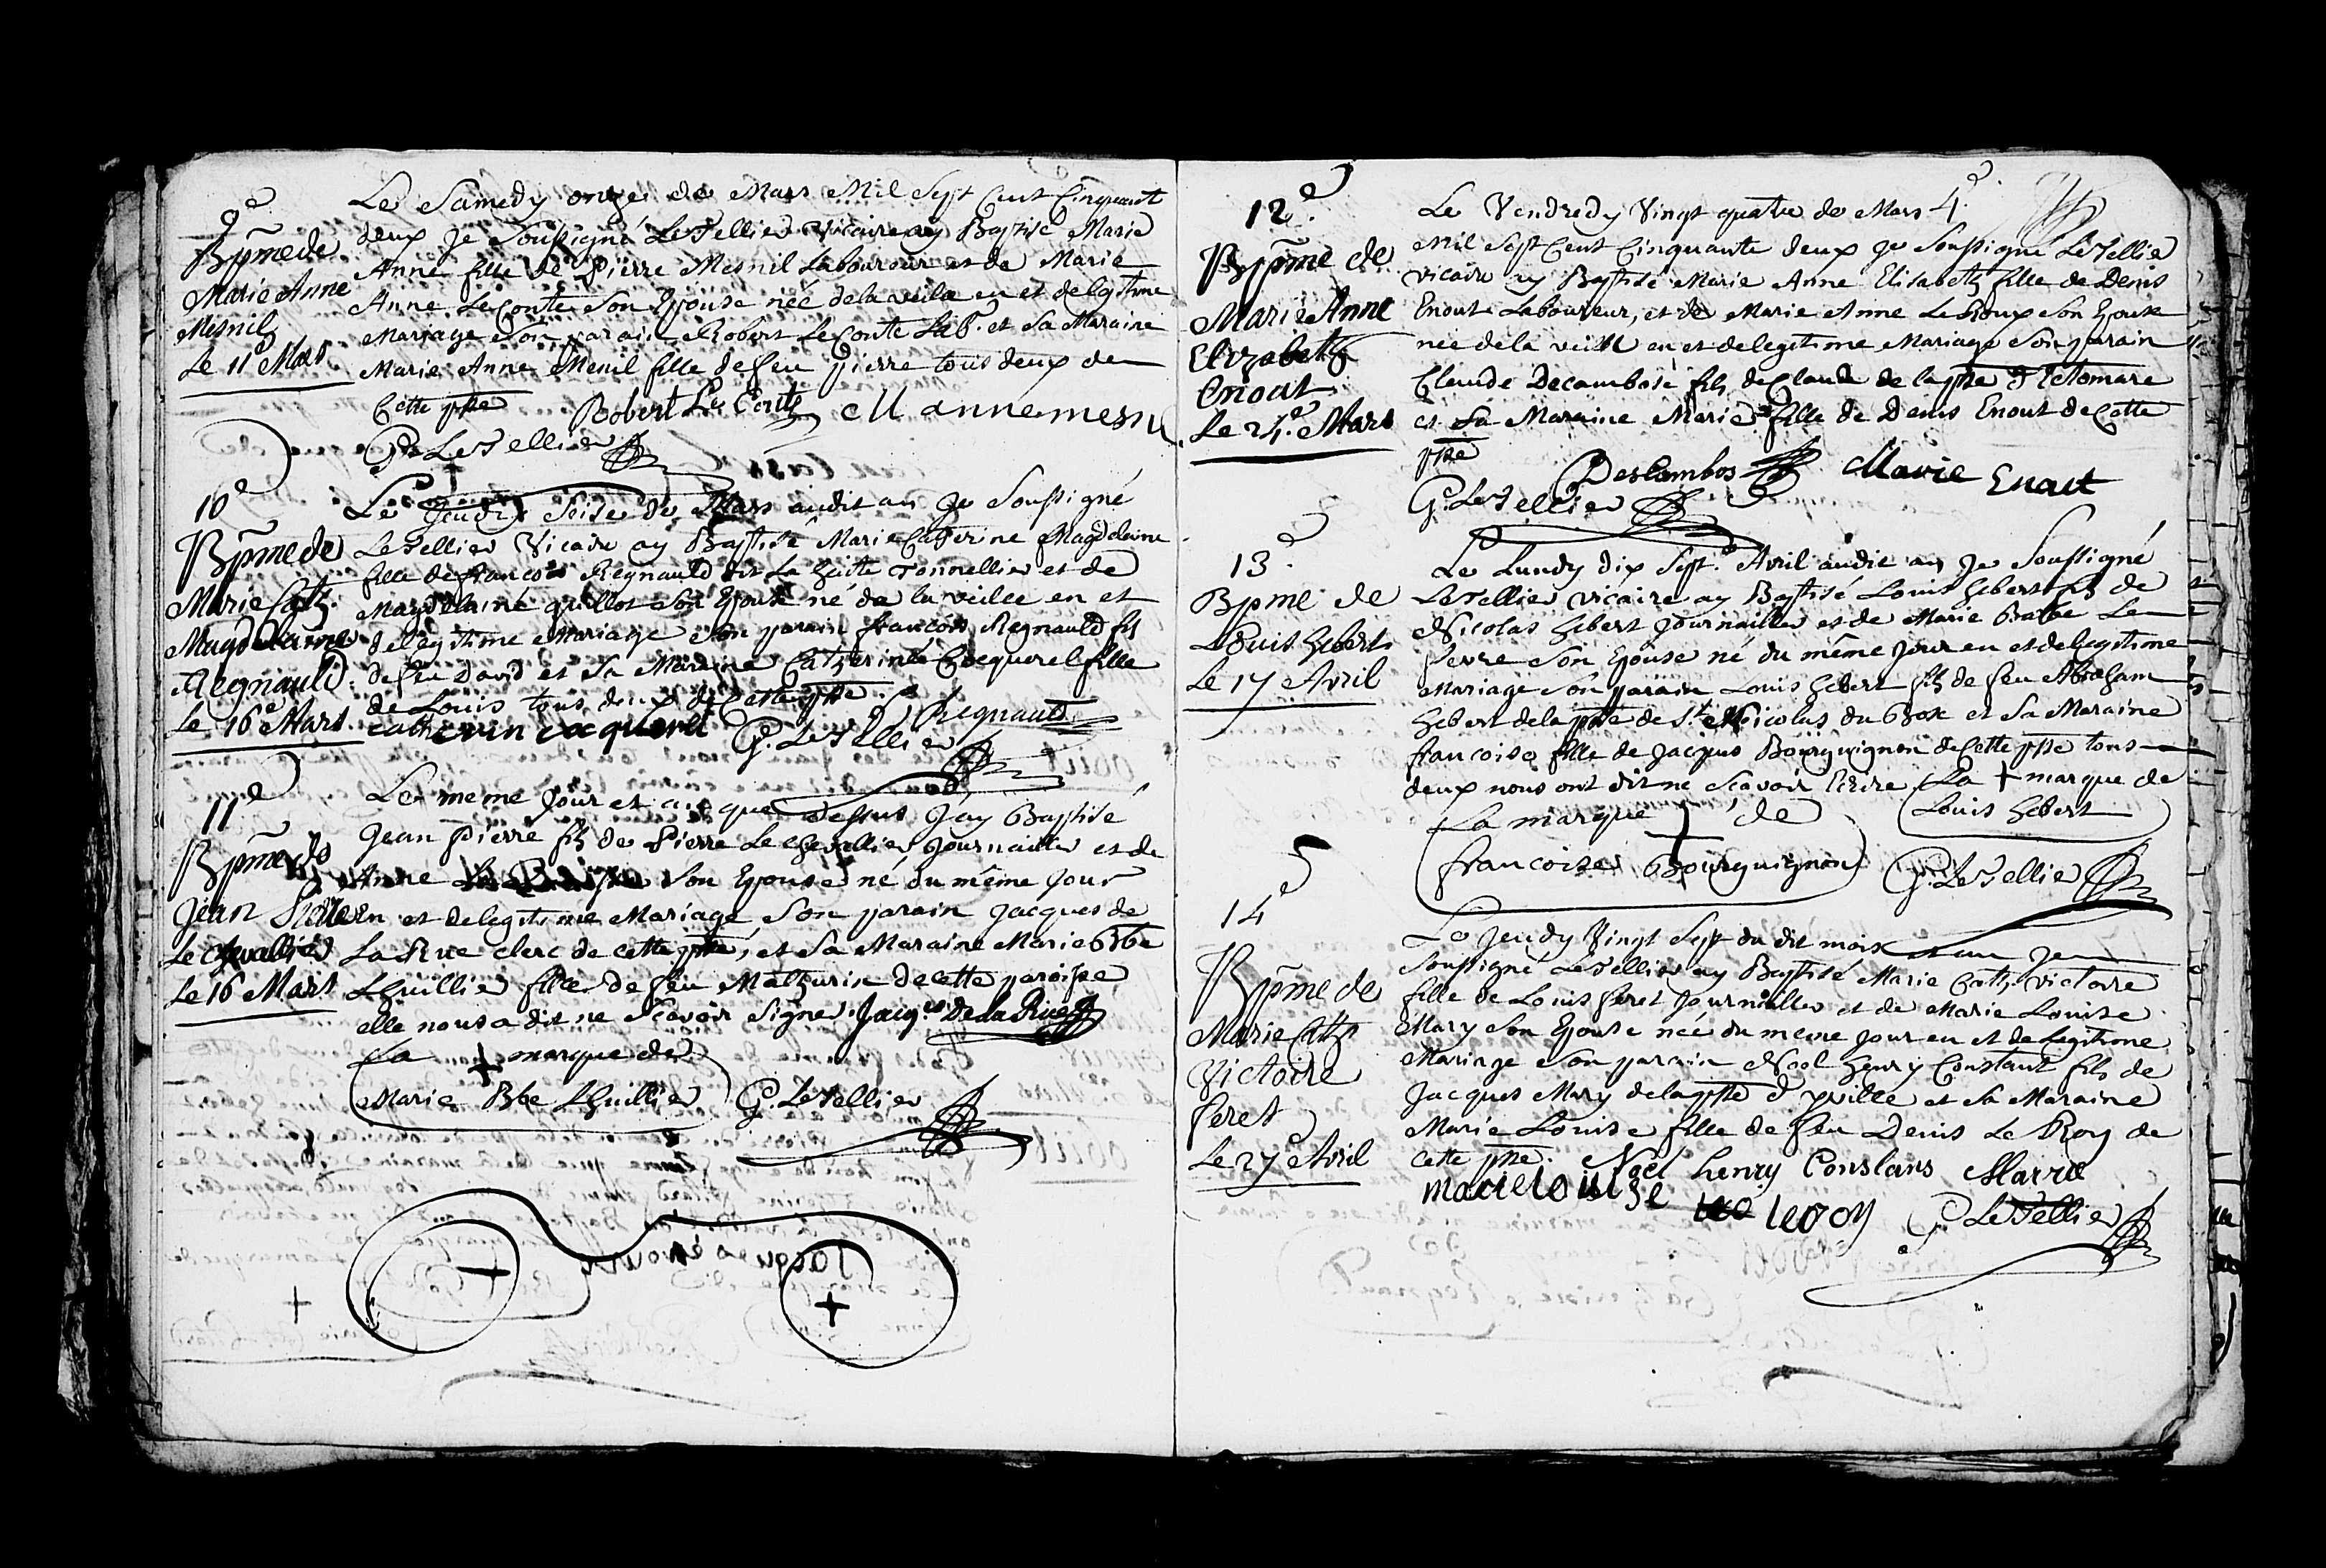 9e
Bpme de
Marie Anne
Mesnil
Le 11e Mars
Le Samedy onze de Mars Mil Sept Cent Cinquante
deux Je Soussigné LeTellier Vicaire ay Baptisé Marie
Anne fille de Pierre Mesnil Laboureur et de Marie
Anne LeConte Son Epouse née de la veille en et delegitime
Mariage Son parain Robert LeConte Lab. et Sa Maraine
Marie Anne Menil fille de feu pierre tous deux de
Cette psse Robert Le Conte M anne mesnil
G. LeTellier
10e
Bpme de
Marie Cath.
Magdelaine
Regnauld
Le 16e Mars
Le Jeudy Seise de Mars audit an Je Soussigné
LeTellier Vicaire ay Baptisé Marie Catherine Magdelaine
fille de francois Regnauld dit La haite Tonnellier et de
Magdelaine quillot Son Epouse né de la veilee en et
delegitime Mariage Son parain francois Regnauld fils
de feu David et Sa Maraine Catherine Cocquerel fille
de Louis tous deux de Cette psse. Regnauld
catherin cocquerel G. LeTellier
11e
Bpme de
Jean Pierre
Le Chevallier
Le 16 Mars
Le meme Jour et an que dessus Jay Baptisé
Jean pierre fils de Pierre Le Chevallier Journailler et de
Anne Son Epouse né du même Jour
En et delegitime Mariage Son parain Jacques de
La Rue clerc de cette psse, et Sa Maraine Marie Bbe
Lhuillier fille de feu Mathurin de cette paroisse
elle nous a dit ne Scavoir Signer Jacq.es De la Rue
La + marque de
Marie Bbe Lhuillier G. LeTellier
12e
Bpme de
Marie Anne
Elizabeth
Enout
Le 24e Mars
Le Vendredy Vingt quatre de Mars 4e
Mil Sept Cent Cinquante deux Je Soussigné LeTellier
vicaire ay Baptisé Marie Anne Elisabeth fille de Denis
Enout Laboureur, et de Marie Anne LeRoux Son Epouse
née de la veille en et delegitime Mariage Son parain
Claude Decambose fils de Claude de la psse d'Ectomare
et Sa Maraine Marie fille de Denis Enout de Cette
psse Descambos Marie Enout
G. LeTellier
13e
Bpme de
Louis hebert
Le 17 Avril
Le Lundy dix Sept.e Avril audit an Je Soussigné
LeTellier vicaire ay Baptisé Louis hebert fils de
Nicolas hebert Journailler et de Marie Barbe Le
fevre Son Epouse né du même Jour en et delegitime
Mariage Son parain Louis hebert fils de feu Abraham
hebert de la psse de St Nicolas du Bosc et Sa Maraine
francoise fille de Jacques Bourguignon de Cette psse tous
deux nous ont dit ne Scavoir Ecrire La + marque de
Louis hebert
La marque + de
francoise Bourguignon G. LeTellier
14e
Bpme de
Marie Cath
Victoire
feret
Le 27e Avril
Le Jeudy Vingt Sept du dit mois et an Je
Soussigné LeTellier ay Baptisé Marie Cath. Victoire
fille de Louis feret Journailler et de Marie Louise
Mary Son Epouse née du meme Jour en et de Legitime
Mariage Son parain Noel henry Constant fils de
Jacques Mary de la psse d'yville et Sa Maraine
Marie Louise fille de feu Denis Le Roy de
Cette psse. Noel henry Constans Marie
marie louise leroy G. LeTellier